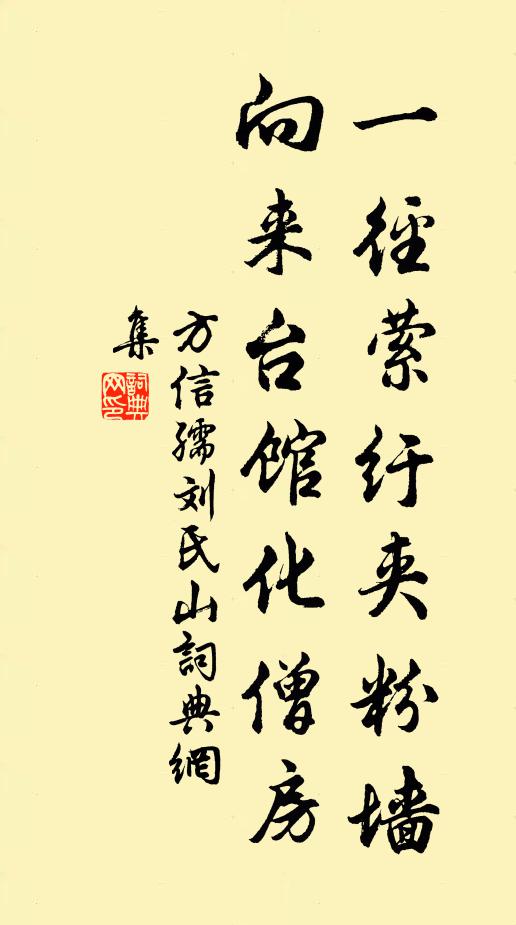 一径萦纡夹粉墙
向来台馆化僧房
方信孺刘氏山詞典網
集
詞典
网印